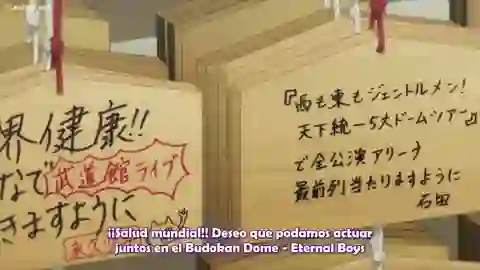 界健康!!
なで武道館ライブ
きますように
『西も東もジェントルメン!
天下統一5大ドームツアー』
で全公演アリーナ
最前列当たりますように
石田
¡¡Salud mundial!! Deseo que podamos actuar
juntos en el Budokan Dome - Eternal Boys